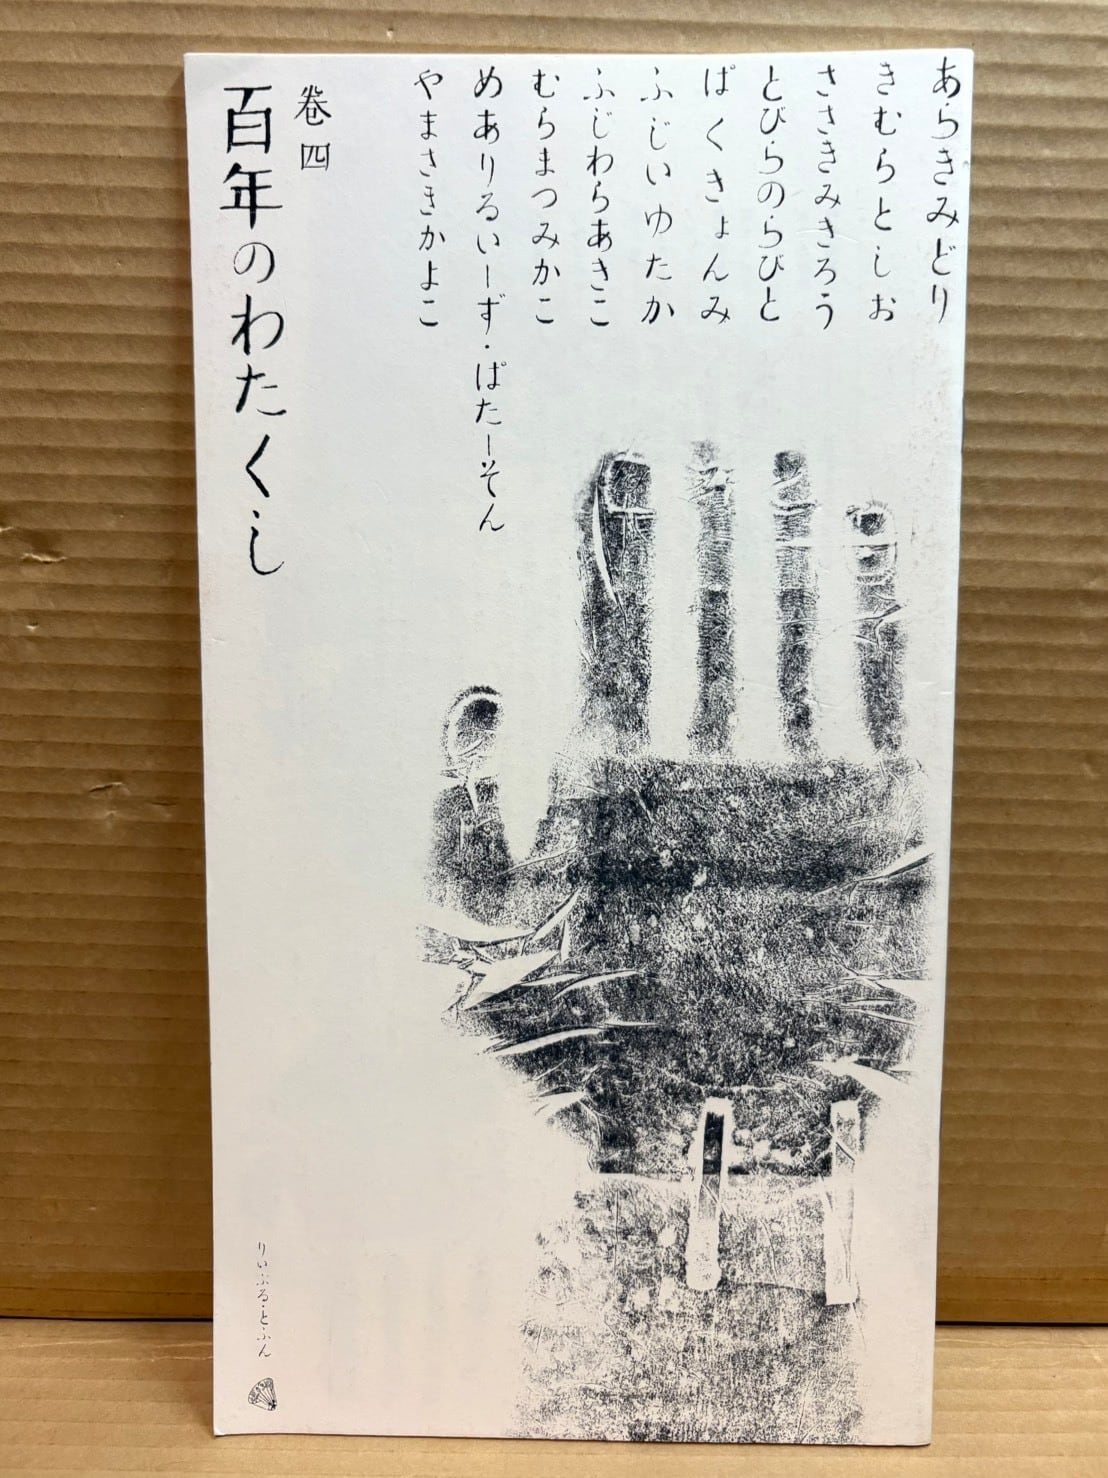 あらきみどり
きむらとしお
ささきみきろう
とびらのらびと
ぱくきょんみ
ふじいゆたか
ふじわらあきこ
むらまつみかこ
めありるいーず・ぱたーそん
やまさきかよこ
巻四
百年のわたくし
りいぶる・とふん